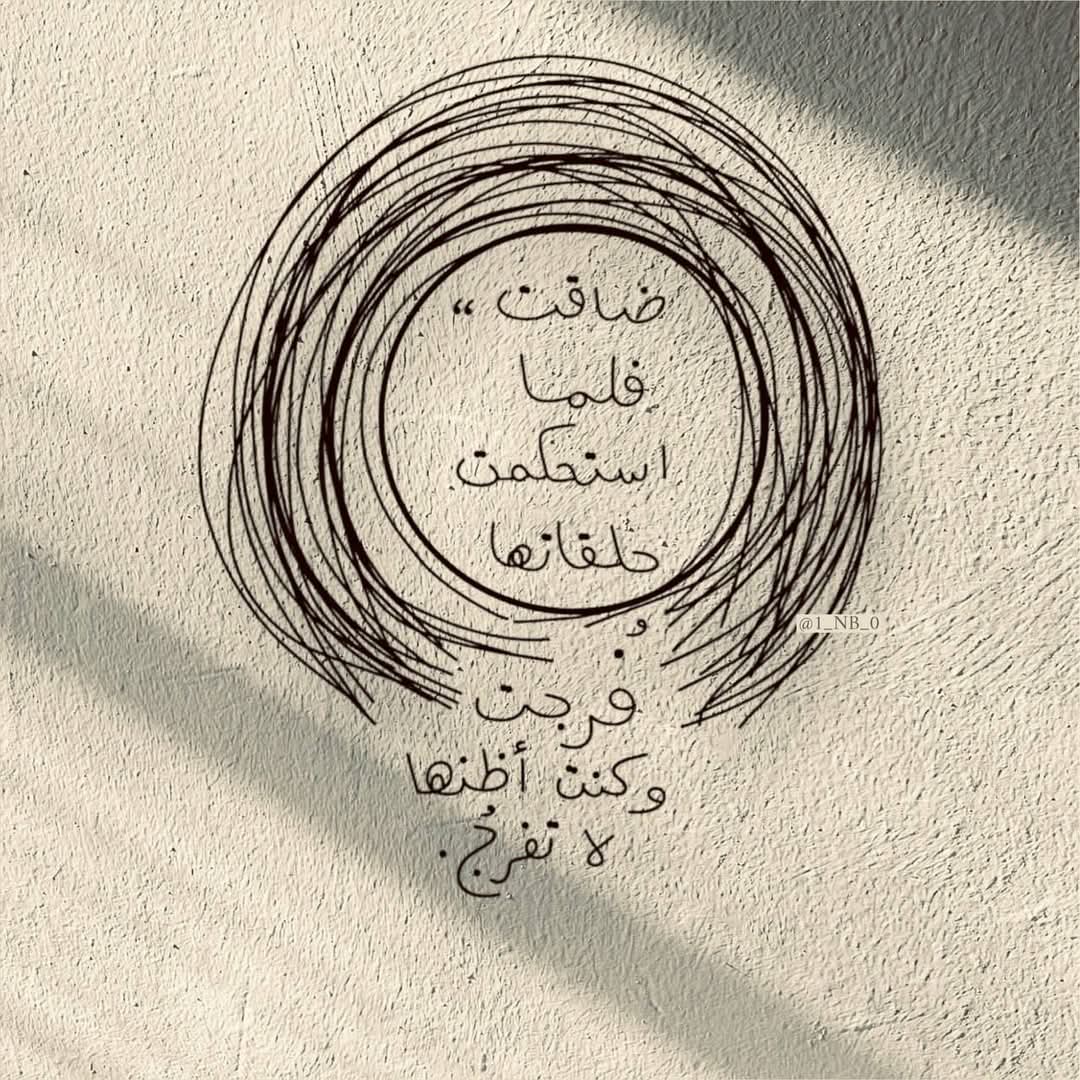 ضاقت “
فلما
استحكمت
حلقاتها
فُرجت
وكنت أظنها
لا تفرجُ.
@1_NB_0